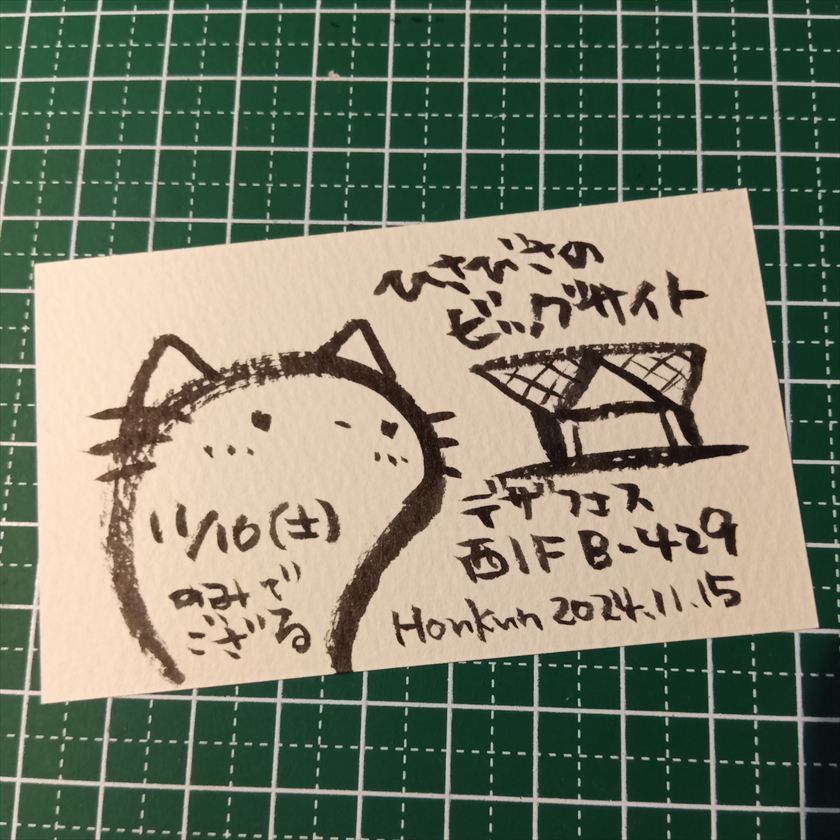 ひさびさの
ビッグサイト
デザフェス
西1F B-429
11/16(土)
のみで
ござる
Honkun 2024.11.15